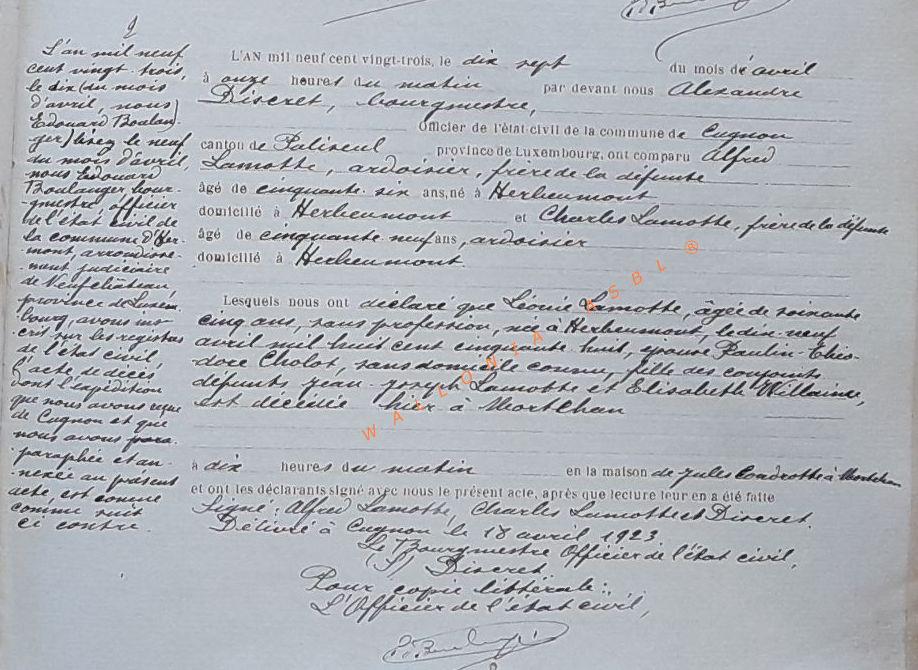 9
L'an mil neuf
cent vingt-trois,
le dix (du mois
d'avril, nous)
Edouard Boulan-
ger) lisez le neuf
du mois d'avril,
nous Edouard
Boulanger bour-
-gmestre, officier
de l'état civil de
la commune d'Her-
mont, arrondisse-
-ment judiciaire
de Neufchâteau,
province de Luxem-
bourg, avons ins-
crit sur les registres
de l'état civil
l'acte de décès
dont l'expédition
que nous avons reçue
de Cugnon et que
nous avons para-
paraphée et an-
nexée au présent
acte, est conçue
comme suit
ci contre.
L'AN mil neuf cent vingt-trois, le dix sept du mois de avril
à onze heures du matin par devant nous Alexandre
Discret, bourgmestre,
Officier de l'état civil de la commune de Cugnon
canton de Paliseul province de Luxembourg, ont comparu Alfred
Lamotte, ardoisier, frère de la défunte
âgé de cinquante-six ans, né à Herbeumont
domicilié à Herbeumont et Charles Lamotte, frère de la défunte
âgé de cinquante neuf ans, ardoisier
domicilié à Herbeumont.
Lesquels nous ont déclaré que Léonie Lamotte, âgée de soixante
cinq ans, sans profession, née à Herbeumont, le dix-neuf
avril mil huit cent cinquante-huit, épouse Paulin-Théo-
-dore Cholot, sans domicile connu, fille des conjoints
défunts Jean-Joseph Lamotte et Elisabeth Willaime,
est décédée hier à Mortehan
à dix heures du matin en la maison de Jules à Mortehan
et ont les déclarants signé avec nous le présent acte, après que lecture leur en a été faite
Signé: Alfred Lamotte, Charles Lamotte et Discret.
Délivré à Cugnon le 18 avril 1923
Le Bourgmestre Officier de l'état civil,
(S) Discret
Pour copie littérale:
L'Officier de l'état civil,
WALLONIA ASBL ®